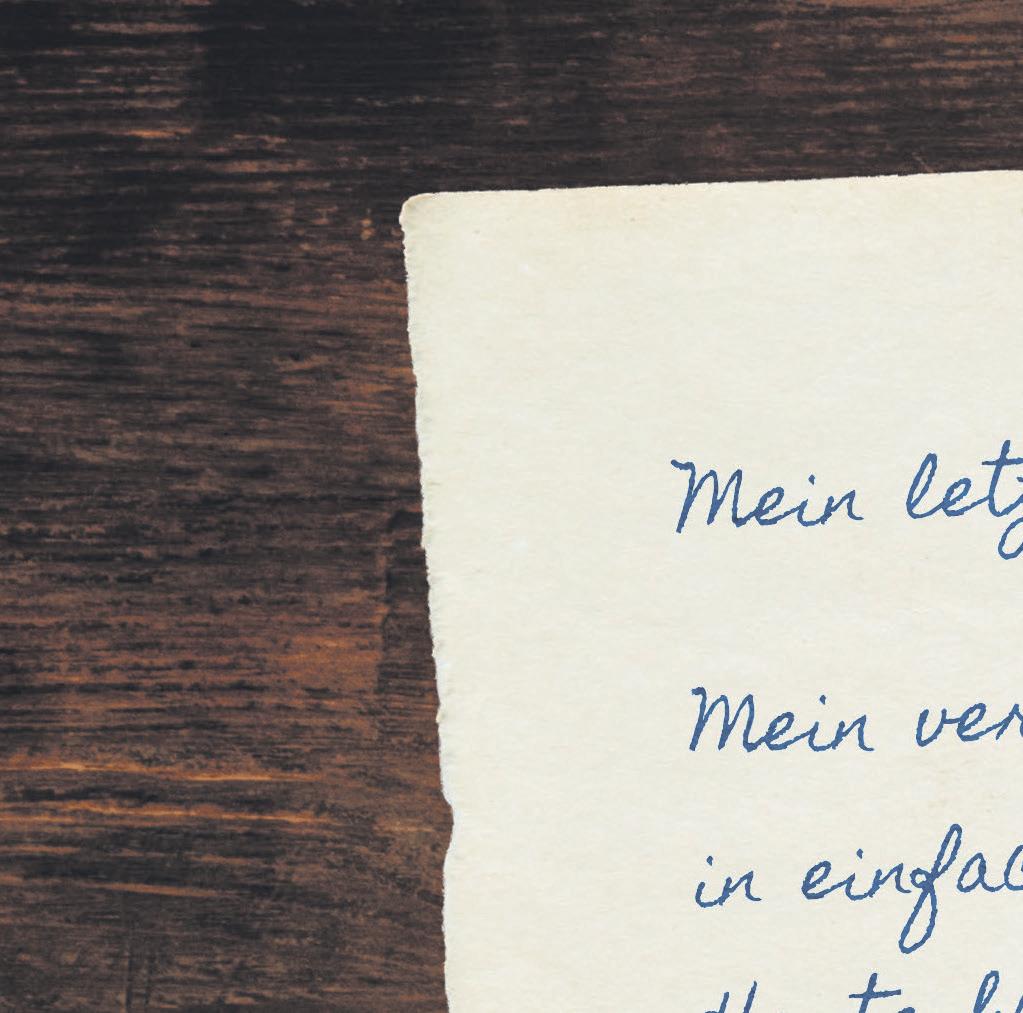 Mein letz
Mein ver
in einfac